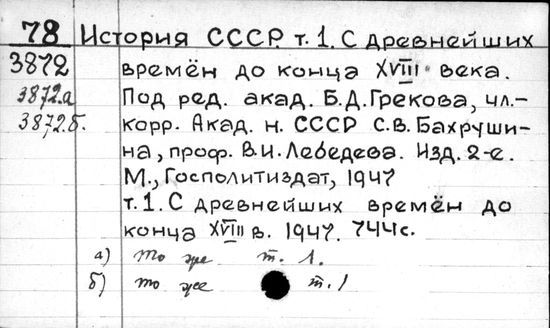 78 История СССР. т. 1. С древнейших
3872 времён до конца XVIII века.
3872.а Под ред. акад. Б.Д.Грекова, чл.-
3872.б. корр. Акад. н. СССР С.В.Бахруши-
на, проф. В.И.Лебедева. Изд. 2-е.
М., Госполитиздат, 1947
т.1. С древнейших времён до
конца XVIII в. 1947. 744с.
а) то же т. 1.
б) то же т. 1